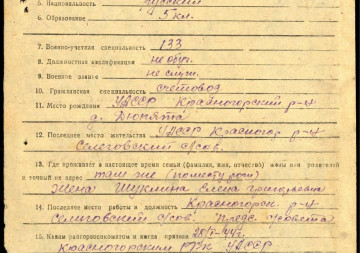 5. Национальность русский
6. Образование 5 кл.
7. Военно-учетная специальность 133
8. Должностная квалификация не обуч.
9. Военное звание не служ.
10. Гражданская специальность счетовод
11. Место рождения УАССР Красногорский р-н
д.
12. Последнее место жительства УАССР Красногор. р-н
Селеговский с/сов.
13. Где проживает в настоящее время семья (фамилия, имя, отчество) жены или родителей
и точный их адрес там же (по месту рож)
жена Щуклина Елена Григорьевна
14. Последнее место работы и должность Красногорск. р-н
Селеговский с/сов. Пред. с/совета
15. Каким райгорвоенкоматом и когда призван
Красногорским РВК УАССР